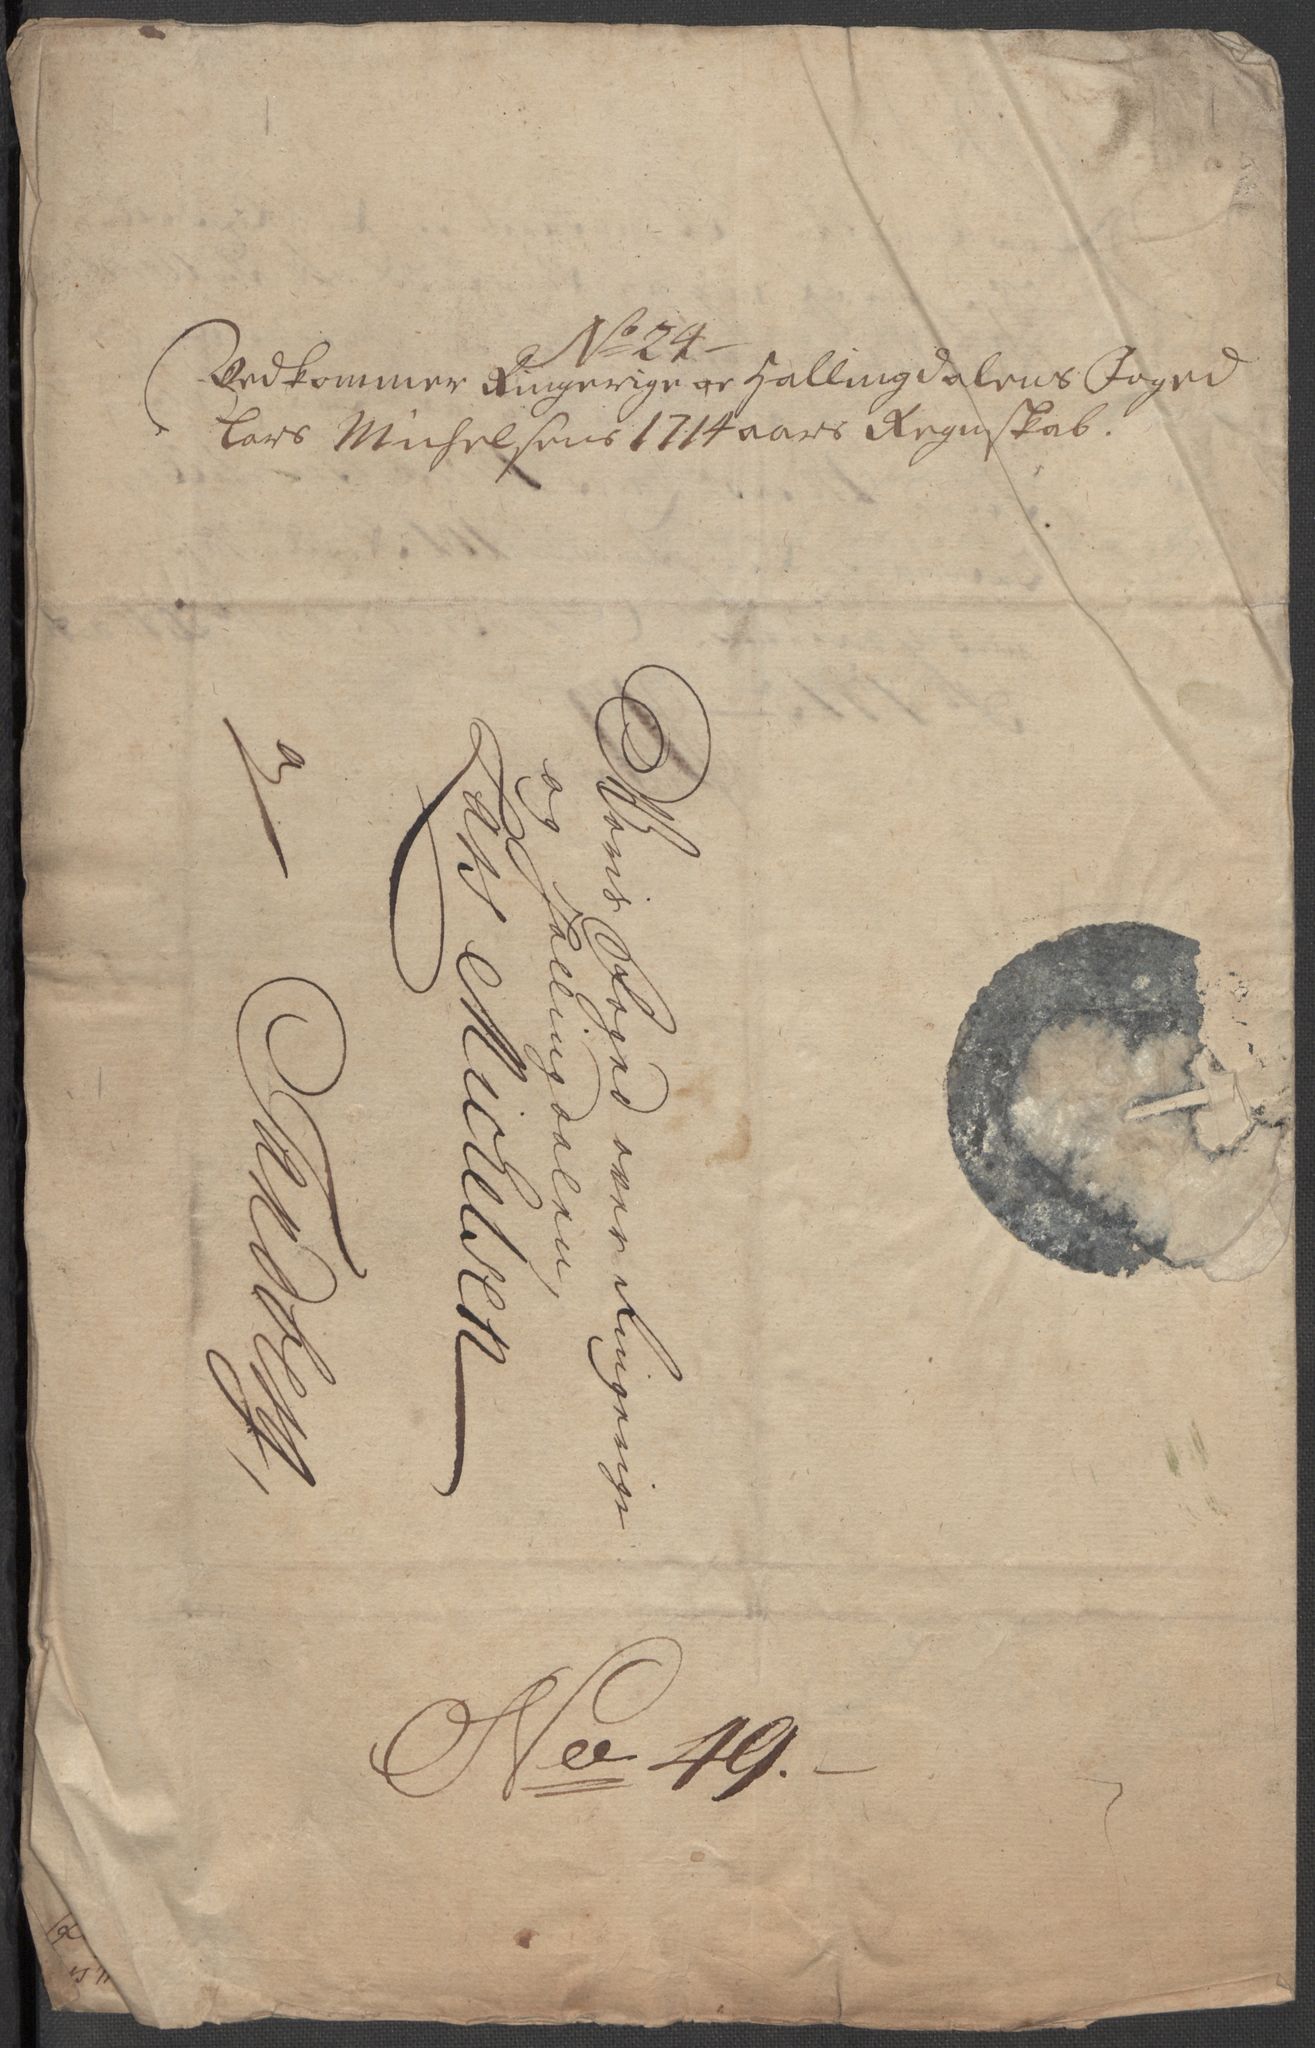 No 24
Vedkommer Ringerige og Hallingdalens Foged
Lars Michelsens 1714 aars Regnskab.
Voris Foged over Ringerige
og Hallingdalen,
Lars Michelsen
a
No 49.